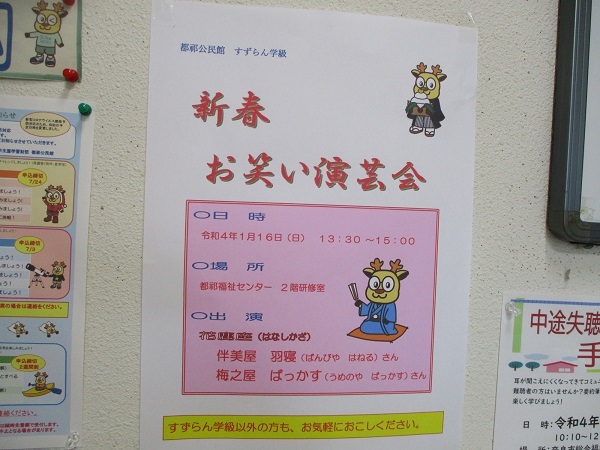 都祁公民館 すずらん学級
新春
お笑い演芸会
〇日 時
令和4年1月16日(日) 13:30~15:00
〇場 所
都祁福祉センター 2階研修室
〇出 演
(はなしかざ)
伴美屋 羽寝(ばんびや はねる)さん
梅之屋 ぱっかす(うめのや ぱっかす)さん
すずらん学級以外の方も、お気軽におこしください。
申込締切
7/24
申込締切
7/9
申込締切
中途失聴
手
耳が聞こえにくくなってきてコミュ
聴障者の方はいませんか?要約筆
楽しく学びましょう!
日 時:令和4年
10:10~12